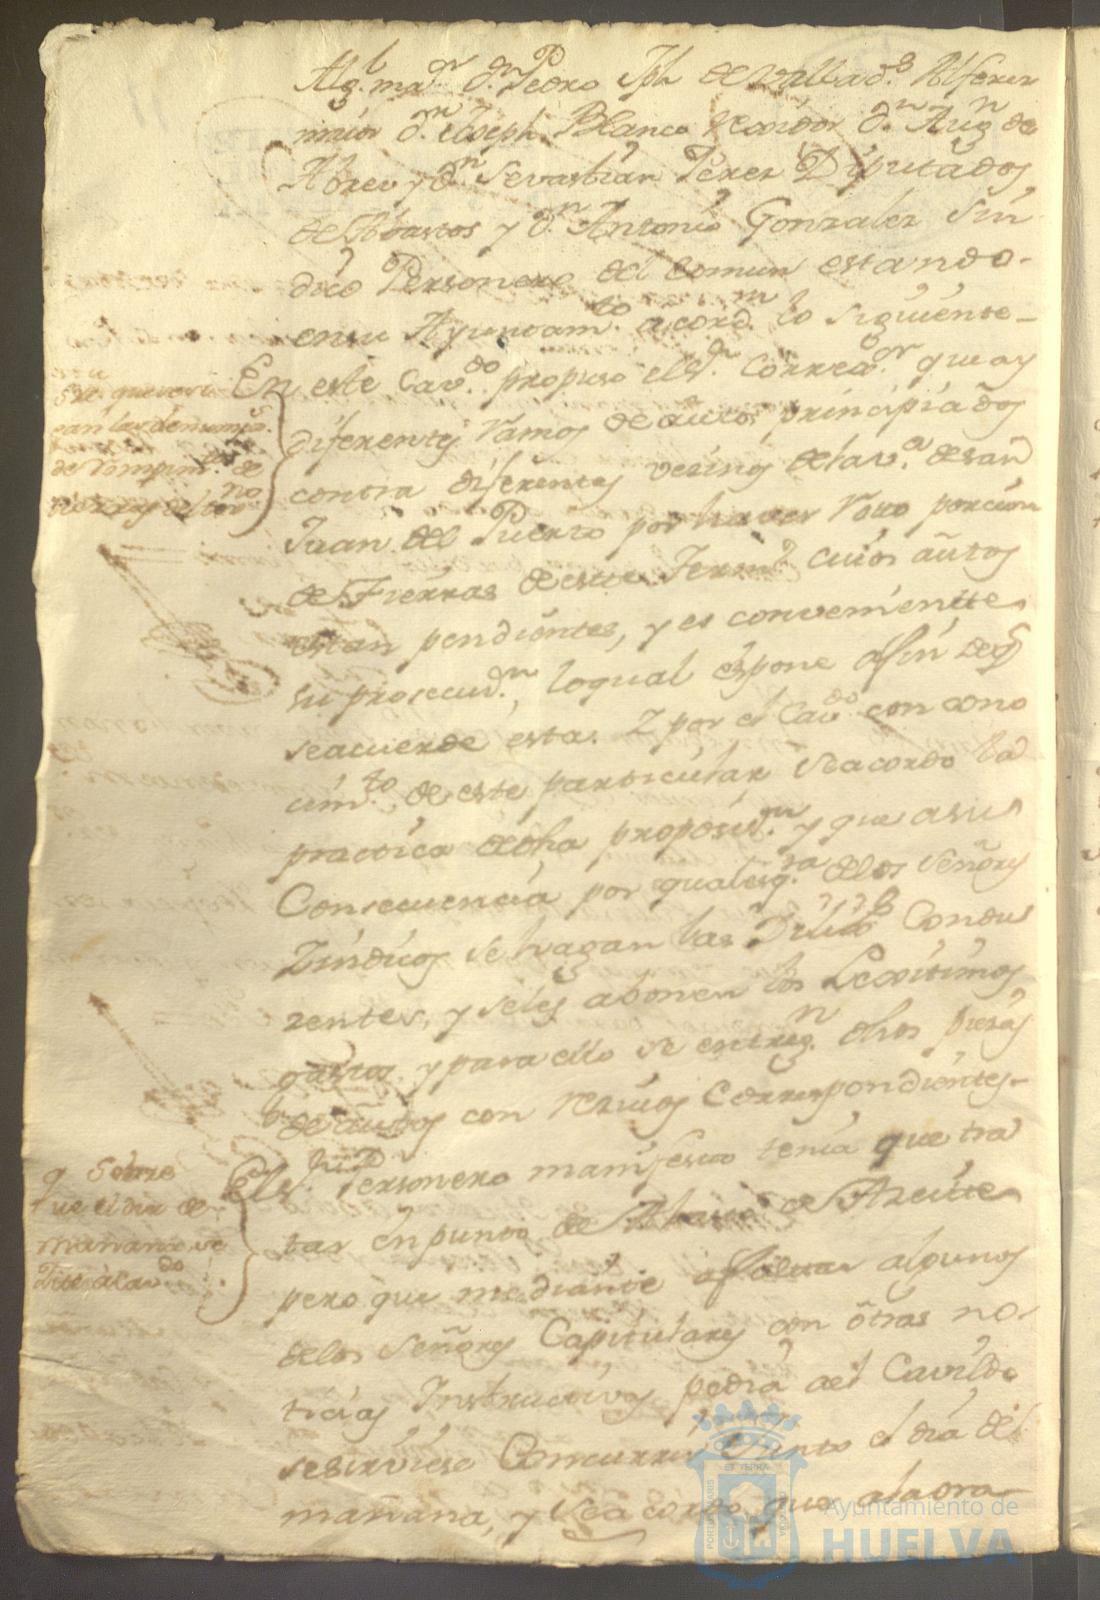 Alg.l ma.or d.n Pedro Jph de Vallad.s Alferez
maior d.n Joseph Blanco Rexidor d.n Aug.n de
Abreu y d.n Sevastian Perez Diputados
de Abastos y d.n Antonio Gonzalez Sin
dico Personero del Comun estando
en su Ayuntam.to acord.n lo siguiente
En este Cav.do propuso el S.r Correx.or que ay
diferentes Ramos de autos principiados
contra diferentes vezinos de la v.a de san
Juan del Puerto por haver Roto porcion
de Tierras de este Term.o cuios autos
estan pendientes, y es conveniente
su prosecuz.n, lo qual espone a fin de q.e
se acuerde esta. Y por el Cav.do con cono
cim.to de este particular se acordo la
practica de dha proposiz.n y que a su
Consecuencia por qualesq.ra de los Señores
Zindicos se hagan las Dilig.s Condu
zentes, y se les abonen los Lexitimos
gastos, y para ello se entreg.n dhos piezas
de autos con Rezivos Correspondientes
El S.r Personero manifesto tenia que tra
tar en punto de Abasto de Azeite
pero que mediante a faltar algunos
de los Señores Capitulares con otras no
ticias Instructivas pedia al Cavildo
se sirviese Concurrir Junto el dia de
mañana, y se acordo que a la ora
Sre. que se si
gan las denunzias
de Rompim.to de
tierras del ter.no
Sobre
que el dia de
mañana se
Zite a Cav.do
Ayuntamiento de
HUELVA